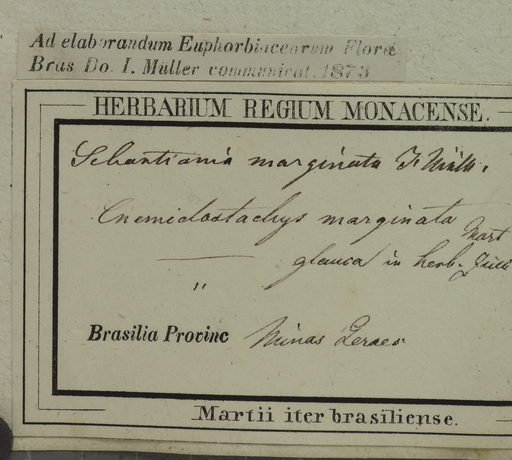 Ad elaborandum Euphorbiacearum Florae
Bras Do. I. Müller communicat. 1873
HERBARIUM REGIUM MONACENSE.
Sebastiania marginata
Cnemidostachys marginata Mart
— glauca in herb.
"
Brasilia Provinc Minas Geraes
Martii iter brasiliense.